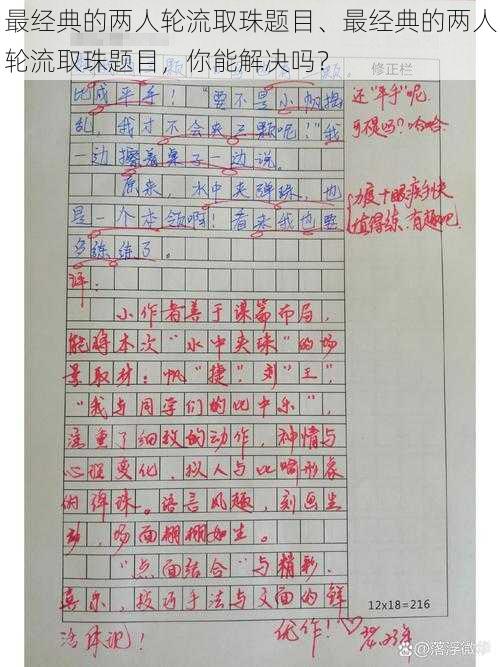 最经典的两人轮流取珠题目、最经典的两人
轮流取珠题目，你能解决吗？
修正栏
比成平手！"要不是小帆捣
乱，我才不会夹三颗呢！"我
一边擦着桌子一边说。
原来，水中夹弹珠，也
是一个本领啊！看来我也要
多练练了。
还"平手"呢
可不是吗？哈哈
力度+眼疾手快
值得练、有趣吧
评：
小作者善于谋篇布局，
能将本次"水中夹珠"的场
景取材：帆"捷"、刘"王"，
"我与同学们的比中乐"，
注重了细致的动作，神情与
心理变化，拟人与比喻形象
的弹珠。语言风趣，刻画生
动，场面栩栩如生。
"点面结合"与精彩、
真乐，技巧手法与文面的鲜
12x18=216
活体现！
优作！
@落浮微华